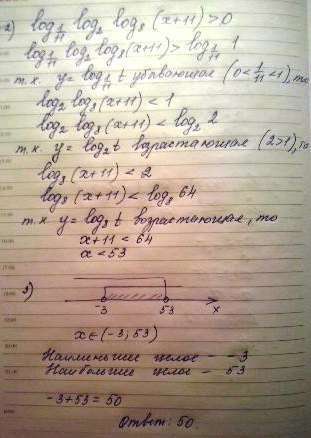 2) log_{1/11} log_2 log_8 (x+11) > 0
log_{1/11} log_2 log_8 (x+11) > log_{1/11} 1
т.к. y = log_{1/11} t убывающая (0<1/11<1), то
log_2 log_8 (x+11) < 1
log_2 log_8 (x+11) < log_2 2
т.к. y = log_2 t возрастающая (2>1), то
log_8 (x+11) < 2
log_8 (x+11) < log_8 64
т.к. y = log_8 t возрастающая, то
x+11 < 64
x < 53
3)
-3 53 x
x∈(-3; 53)
Наименьшее целое - -3
Наибольшее целое - 53
-3+53 = 50
Ответ: 50.